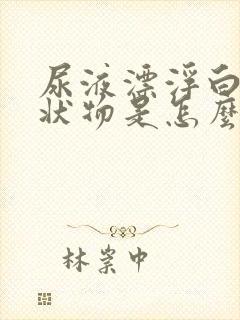 尿液漂浮白
状物是怎麼
林崇中